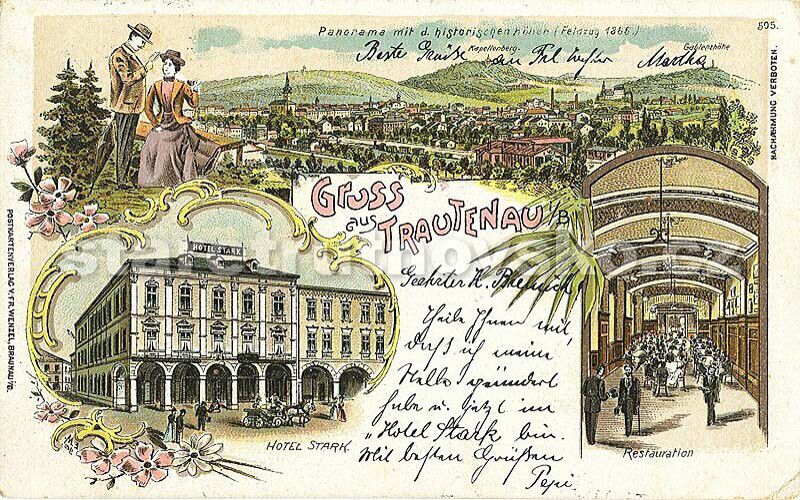 Panorama mit d. historischen Höhen (Feldzug 1866.)
505.
Kapellenberg.
Gablenzhöhe
Beste Grüße an Frl. Martha
NACHAHMUNG VERBOTEN.
GRUSS
aus
TRAUTENAU i/B.
HOTEL STARK
Geehrter H.
Theile Ihnen mit,
daß ich meine
Stelle geändert
habe u. jetzt im
"Hotel Stark bin.
Mit besten Grüßen
Pepi.
HOTEL STARK.
Restauration
POSTKARTENVERLAG V. FR. WENZEL, BRAUNAU i/B.